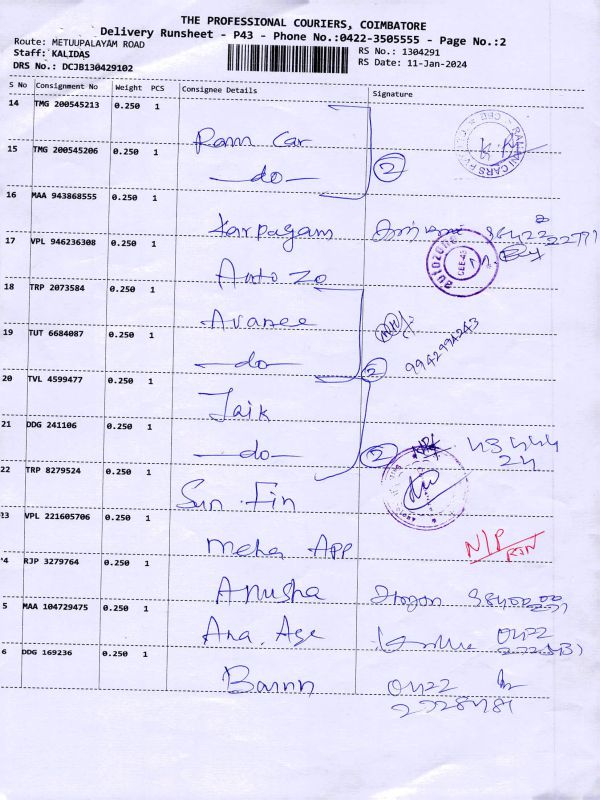 THE PROFESSIONAL COURIERS, COIMBATORE
Delivery Runsheet - P43 - Phone No.:0422-3505555 - Page No.:2
Route: METUUPALAYAM ROAD
RS No.: 1304291
Staff: KALIDAS
RS Date: 11-Jan-2024
DRS No.: DCJB130429102
S No Consignment No Weight PCS Consignee Details Signature
14 TMG 200545213 0.250 1 Ram Car
15 TMG 200545206 0.250 1 —do— 2
16 MAA 943868555 0.250 1 Karpagam
17 VPL 946236308 0.250 1 Auto Zo
AUTOZONE
18 TRP 2073584 0.250 1 Avanee
19 TUT 6684087 0.250 1 —do— 2 9942994243
20 TVL 4599477 0.250 1 Jaik
21 DDG 241106 0.250 1 —do— 2
22 TRP 8279524 0.250 1 Sun Fin
23 VPL 221605706 0.250 1 Meha App N/P RTN
24 RJP 3279764 0.250 1 Anusha
5 MAA 104729475 0.250 1 Ana. Age 0422
6 DDG 169236 0.250 1 Bann 0422